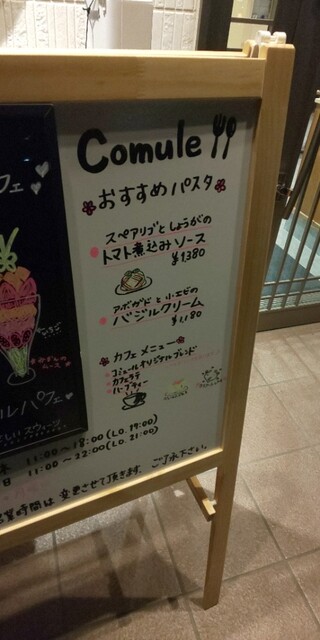 Comule
おすすめパスタ
スペアリブとしょうがの
トマト煮込みソース
¥1380
アボガドと小エビの
バジルクリーム
¥1,180
カフェメニュー
コミュールオリジナルブレンド
カフェラテ
ハーブティー
フェ
ルパフェ
11:00〜18:00(L.O.19:00)
日 11:00〜22:00(L.O.21:00)
業時間は変更させて頂きます。ご了承下さい。